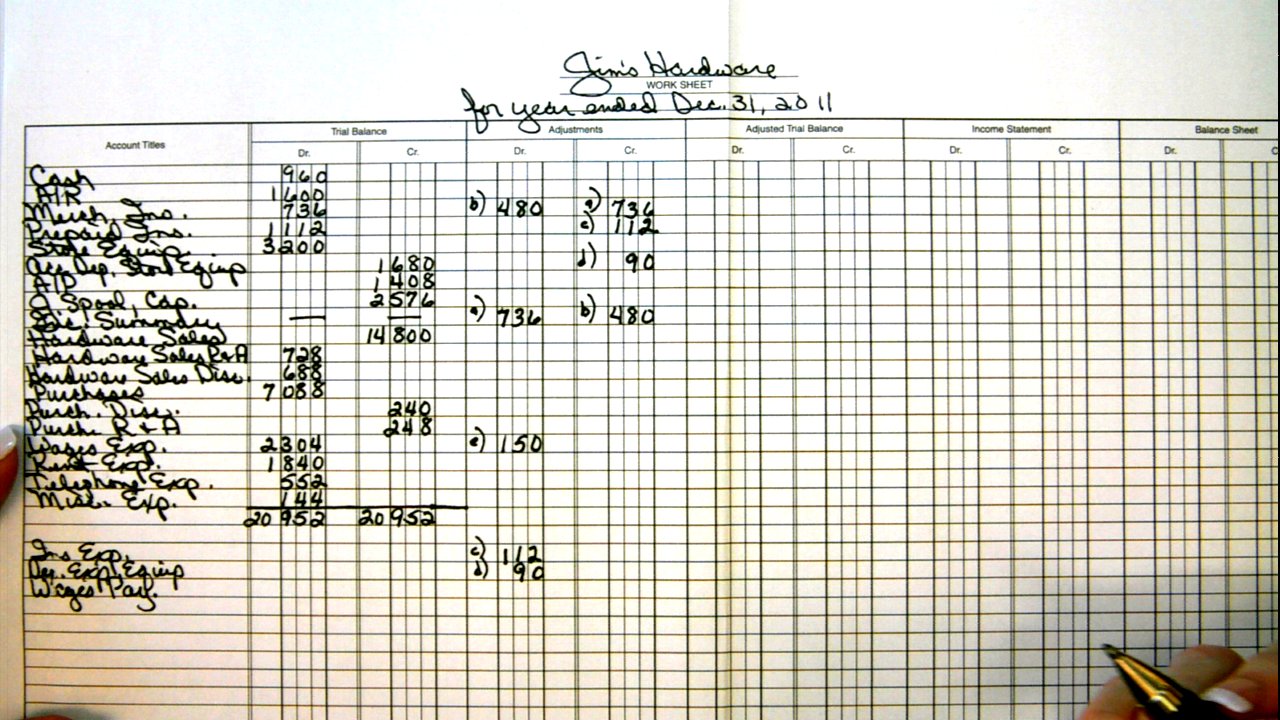 Jim's Hardware
WORK SHEET
for year ended Dec. 31, 2011
Account Titles Trial Balance Adjustments Adjusted Trial Balance Income Statement Balance Sheet
Dr. Cr. Dr. Cr. Dr. Cr. Dr. Cr. Dr. C
Cash 960
A/R 1600
Merch. Inv. 736 b) 480 a) 736
Prepaid Ins. 1112 c) 112
Store Equip. 3200
Acc. Dep. Store Equip 1680 d) 90
A/P 1408
J. Spool, Cap. 2576
Inc. Summary — — a) 736 b) 480
Hardware Sales 14800
Hardware Sales R&A 728
Hardware Sales Disc. 688
Purchases 7088
Purch. Disc. 240
Purch. R & A 248
Wages Exp. 2304 e) 150
Rent Exp. 1840
Telephone Exp. 552
Misc. Exp. 144
20952 20952
Ins Exp. c) 112
Dep. Exp. Equip d) 90
Wages Pay.